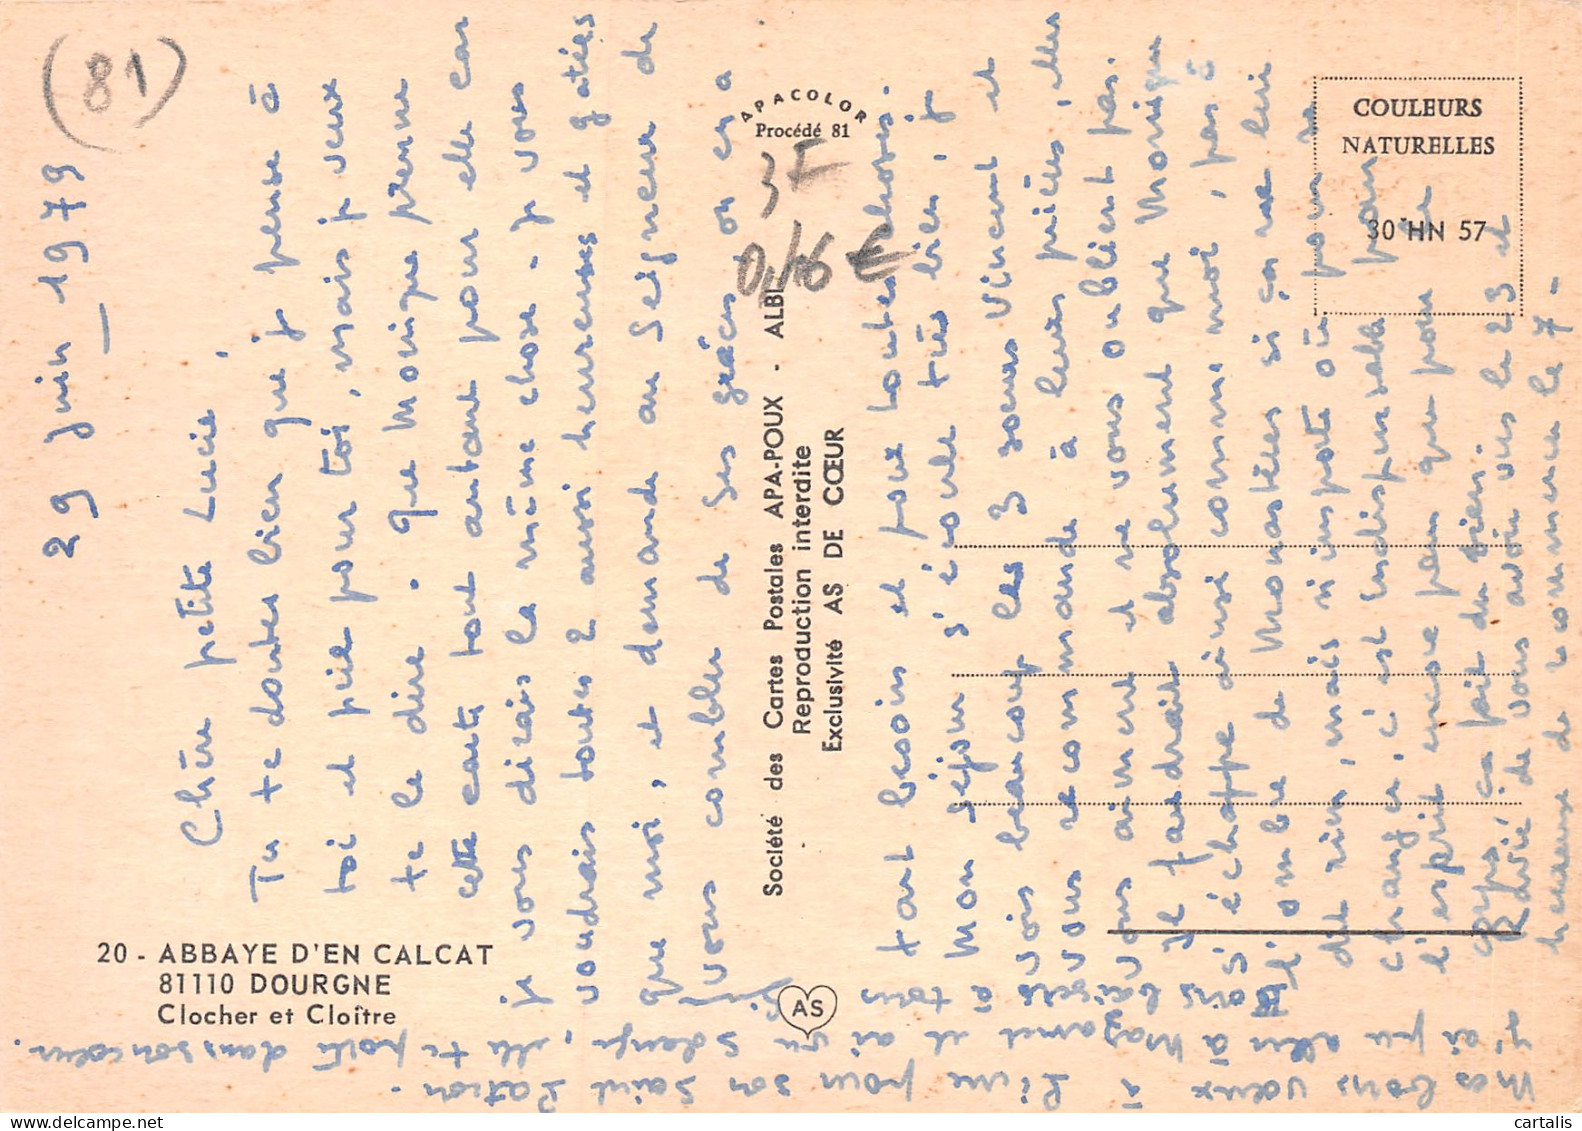 (81)
29 Juin 1979
Chère petite Lucie,
Tu te doutes bien que je pense à
toi et prie pour toi, mais je veux
te le dire. Que Monique prenne
cette carte tout autant pour elle car
je vous dirais la même chose. Je vous
voudrais toutes 2 aussi heureuses et gatées
que moi, et demande au Seigneur de
vous combler de ses grâces, on en a
tant besoin et pour toutes choses.
Mon séjour s'écoule très bien, je
vois beaucoup les 3 soeurs Vincent et
vous recommande à leurs prières, elles
vous aiment et ne vous oublient pas.
Il faudrait absolument que Monique
s'échappe ainsi comme moi, pas à
l'ombre de Monastères si ça ne lui
dit rien, mais n'importe où pour se
changer, c'est indispensable pour
l'esprit encore plus que pour le
corps, ça fait du bien.
Ravie de vous avoir vus le 23 et
heureuse de recommencer le 7.
Bons baisers à tous
J'ai pu aller à Mazamet et ai vu Solange, elle te porte dans son coeur.
Mes bons vœux à Line pour son saint Patron.
APACOLOR
Procédé 81
3F
0,46 €
Société des Cartes Postales APA-POUX - ALBI
Reproduction interdite
Exclusivité AS DE CŒUR
AS
COULEURS
NATURELLES
30 HN 57
20 - ABBAYE D'EN CALCAT
81110 DOURGNE
Clocher et Cloître
cartalis